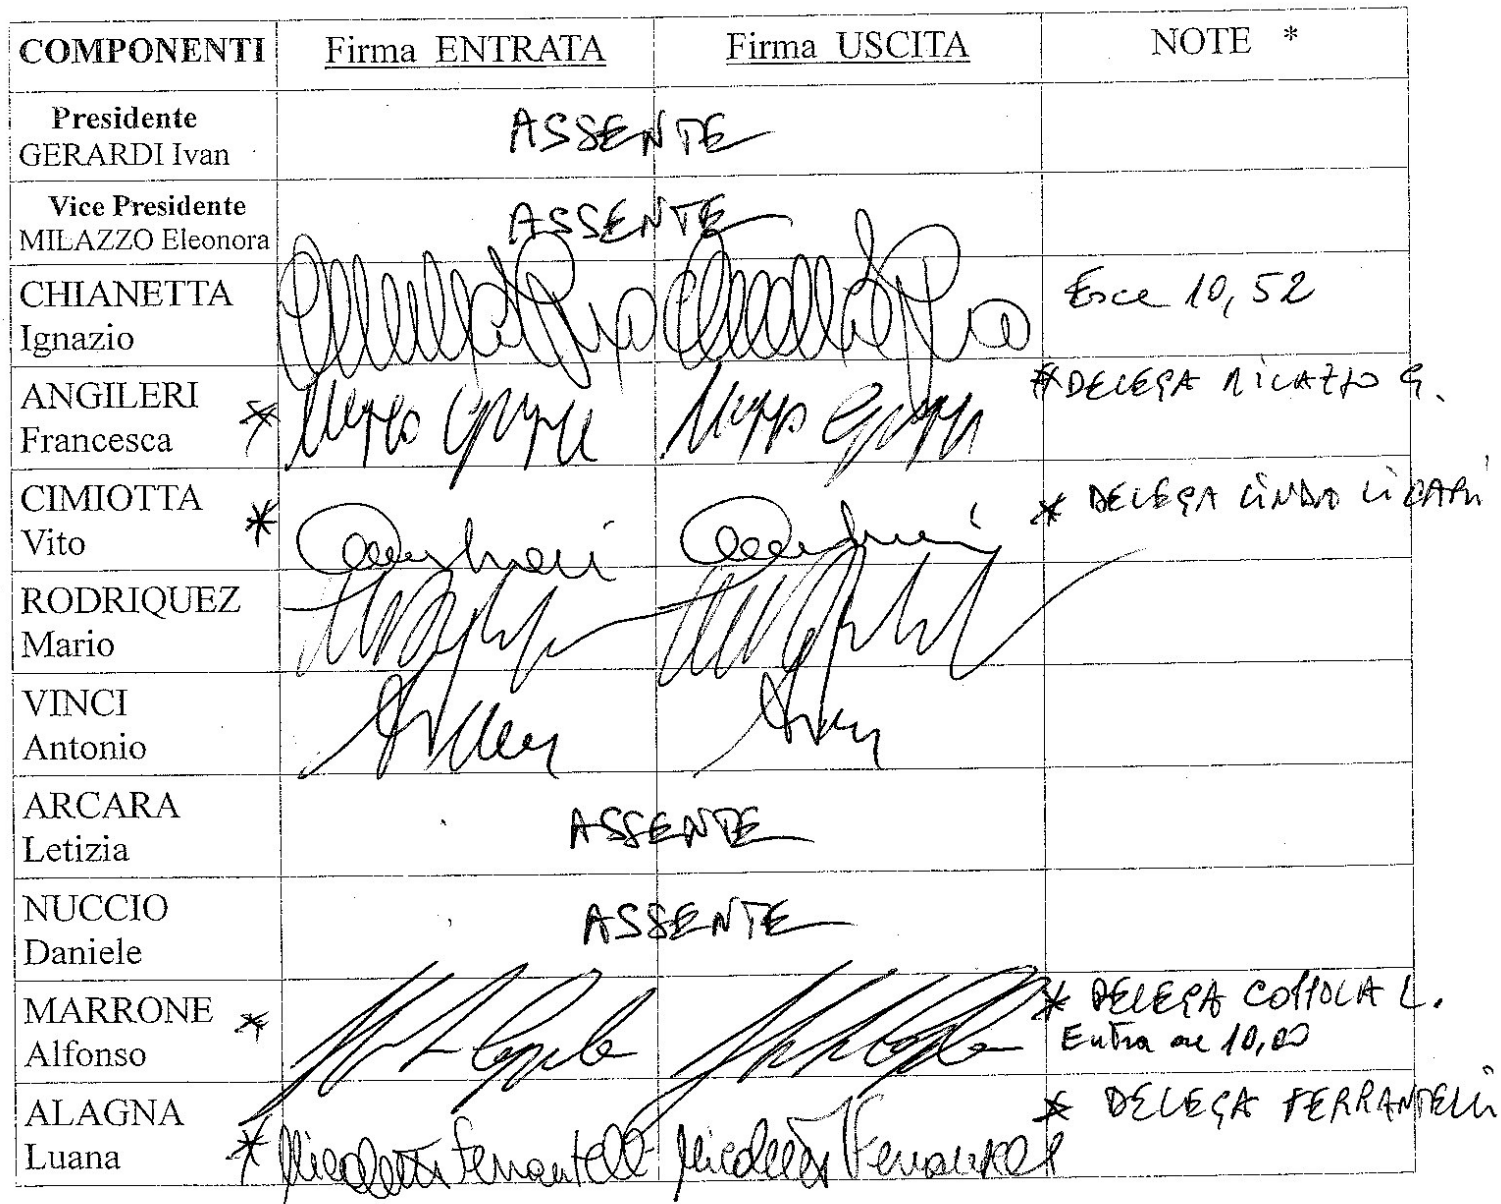 COMPONENTI Firma ENTRATA Firma USCITA NOTE *
Presidente
GERARDI Ivan
ASSENTE
Vice Presidente
MILAZZO Eleonora
ASSENTE
CHIANETTA
Ignazio
Esce 10,52
ANGILERI
Francesca
*
* DELEGA MILAZZO G.
CIMIOTTA
Vito
*
* DELEGA LINDA LICARI
RODRIQUEZ
Mario
VINCI
Antonio
ARCARA
Letizia
ASSENTE
NUCCIO
Daniele
ASSENTE
MARRONE
Alfonso
*
* DELEGA COPPOLA L.
Entra ore 10,00
ALAGNA
Luana
*
Nicoletta Ferrantelli Nicoletta Ferrantelli
* DELEGA FERRANTELLI